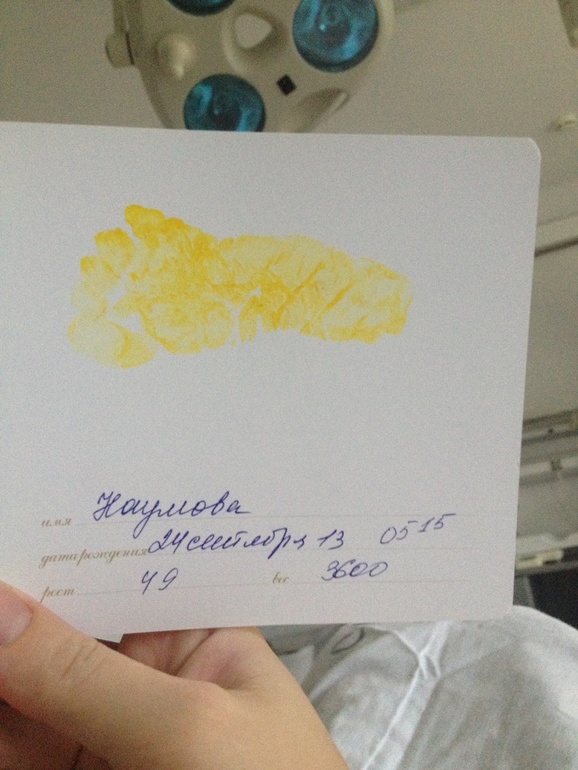 имя Наумова
дата рождения 24 сентября 13 05 15
рост 49 вес 3600